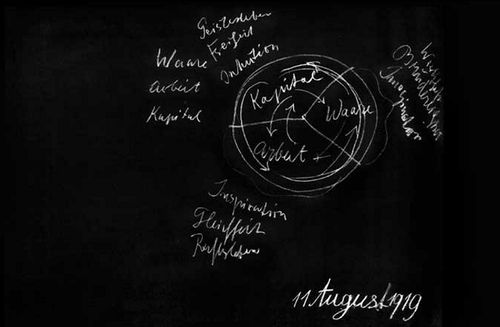 Geistesleben
Freiheit
Intuition
Waare
Arbeit
Kapital
Kapital
Waare
Arbeit
Brüderlichkeit
Imagination
Inspiration
Gleichheit
Rechtsleben
11 August 1919